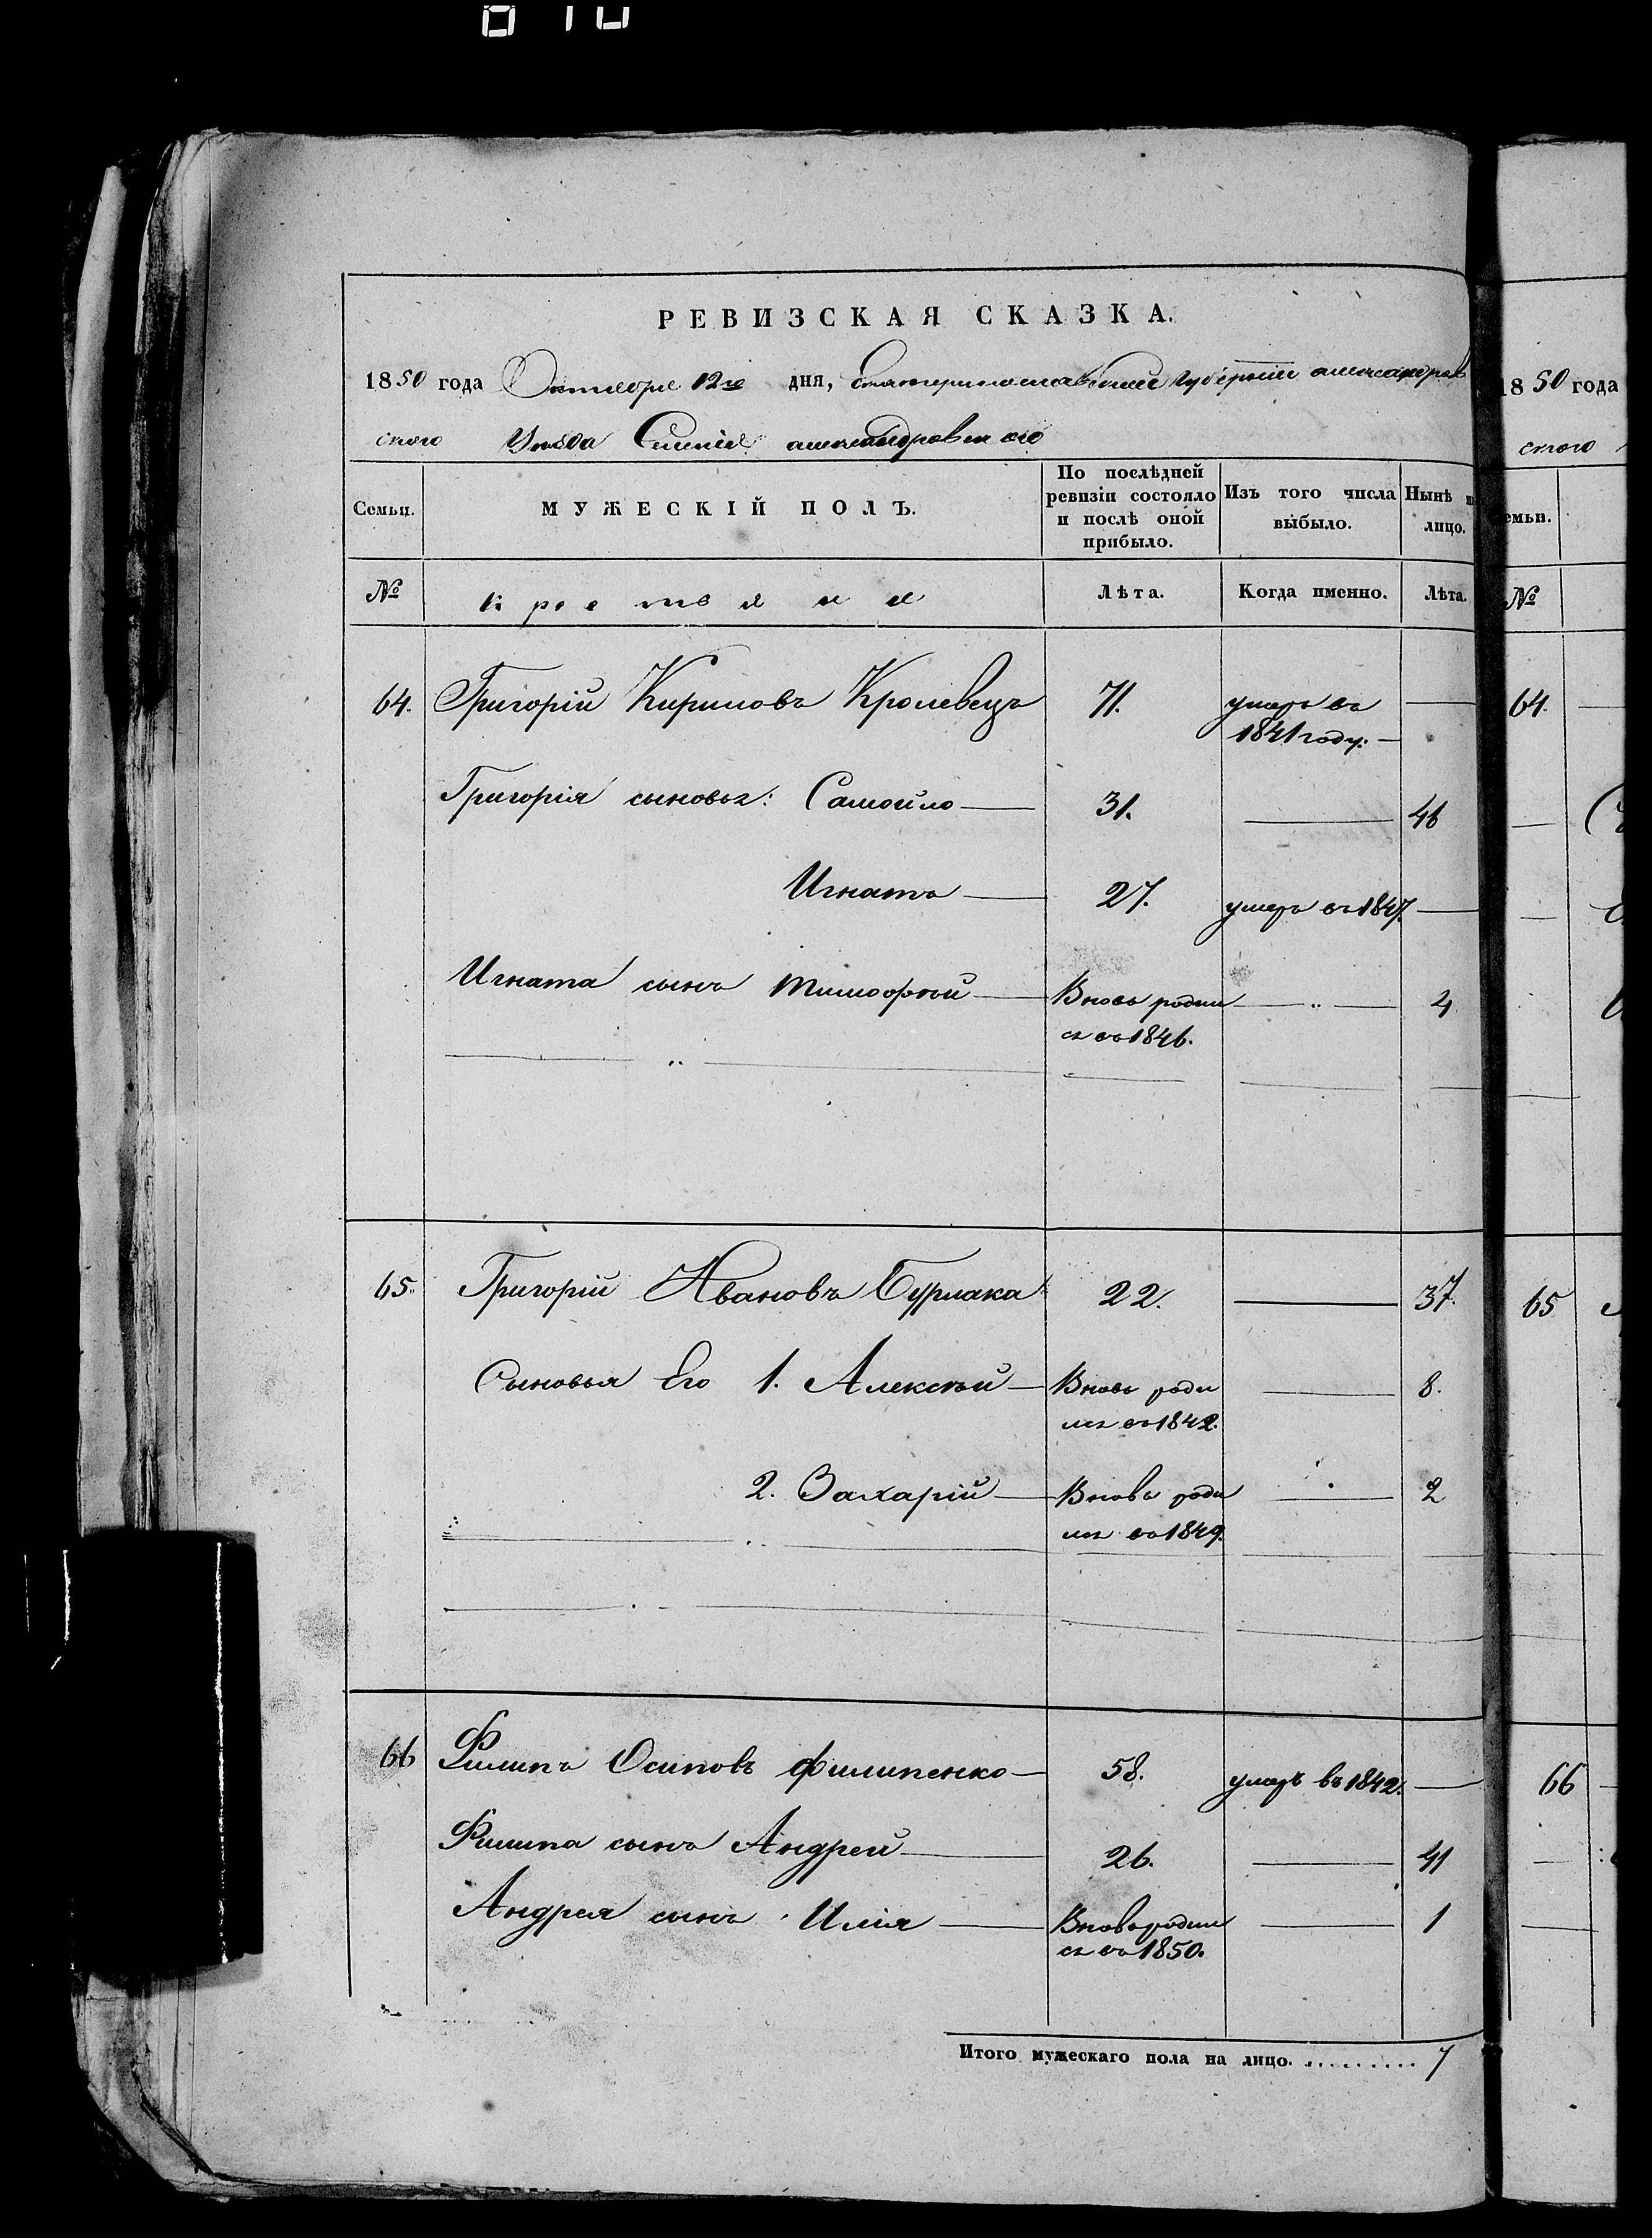 РЕВИЗСКАЯ СКАЗКА.
1850 года Октября 12го дня, Екатеринославской губернии александров
ского Уѣзда Селенія александровского
Семьи.
МУЖЕСКІЙ ПОЛЪ.
По послѣдней
ревизіи состояло
и послѣ оной
прибыло.
Изъ того числа
выбыло.
Нынѣ
лицо.
№ крестьяня Лѣта. Когда именно. Лѣта.
64. Григорій Кириловъ Кролевецъ 71. умеръ въ
1841 году.
Григорія сыновья: Самойло 31. 46
Игнатъ 27. умеръ въ 1847.
Игната сынъ Тимофѣй Вновь родил 4
ся въ 1846.
65. Григорій Ивановъ Бурлака 22. 37.
Сыновья Его 1. Алексѣй Вновь роди 8.
лся въ 1842.
2. Захарій Вновь роди 2
лся въ 1849.
66 Филипъ Осиповъ Филипенко 58. умеръ въ 1842.
Филипа сынъ Андрей 26. 41
Андрея сынъ Илія Вновь родил 1
ся въ 1850.
Итого мужескаго пола на лицо. ......... 7
1850 года
ского
емьи.
№
64.
65
66